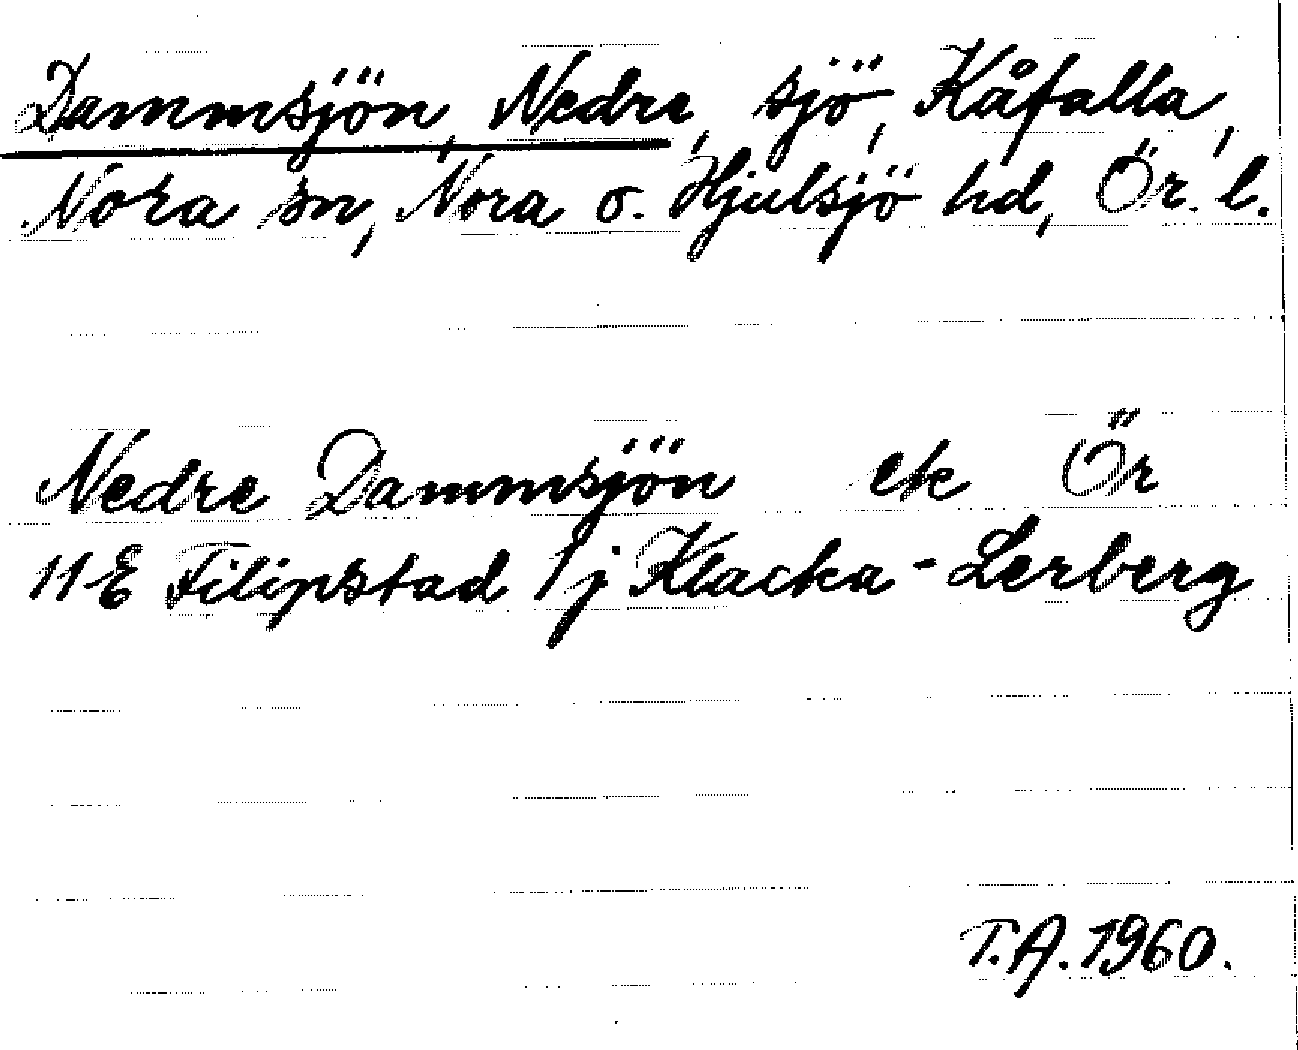 Dammsjön, Nedre, sjö, Kåfalla,
Nora sn, Nora o. Hjulsjö hd, Ör. l.
Nedre Dammsjön ek Ör
11 E Filipstad 1j Klacka-Lerberg
T.A. 1960.